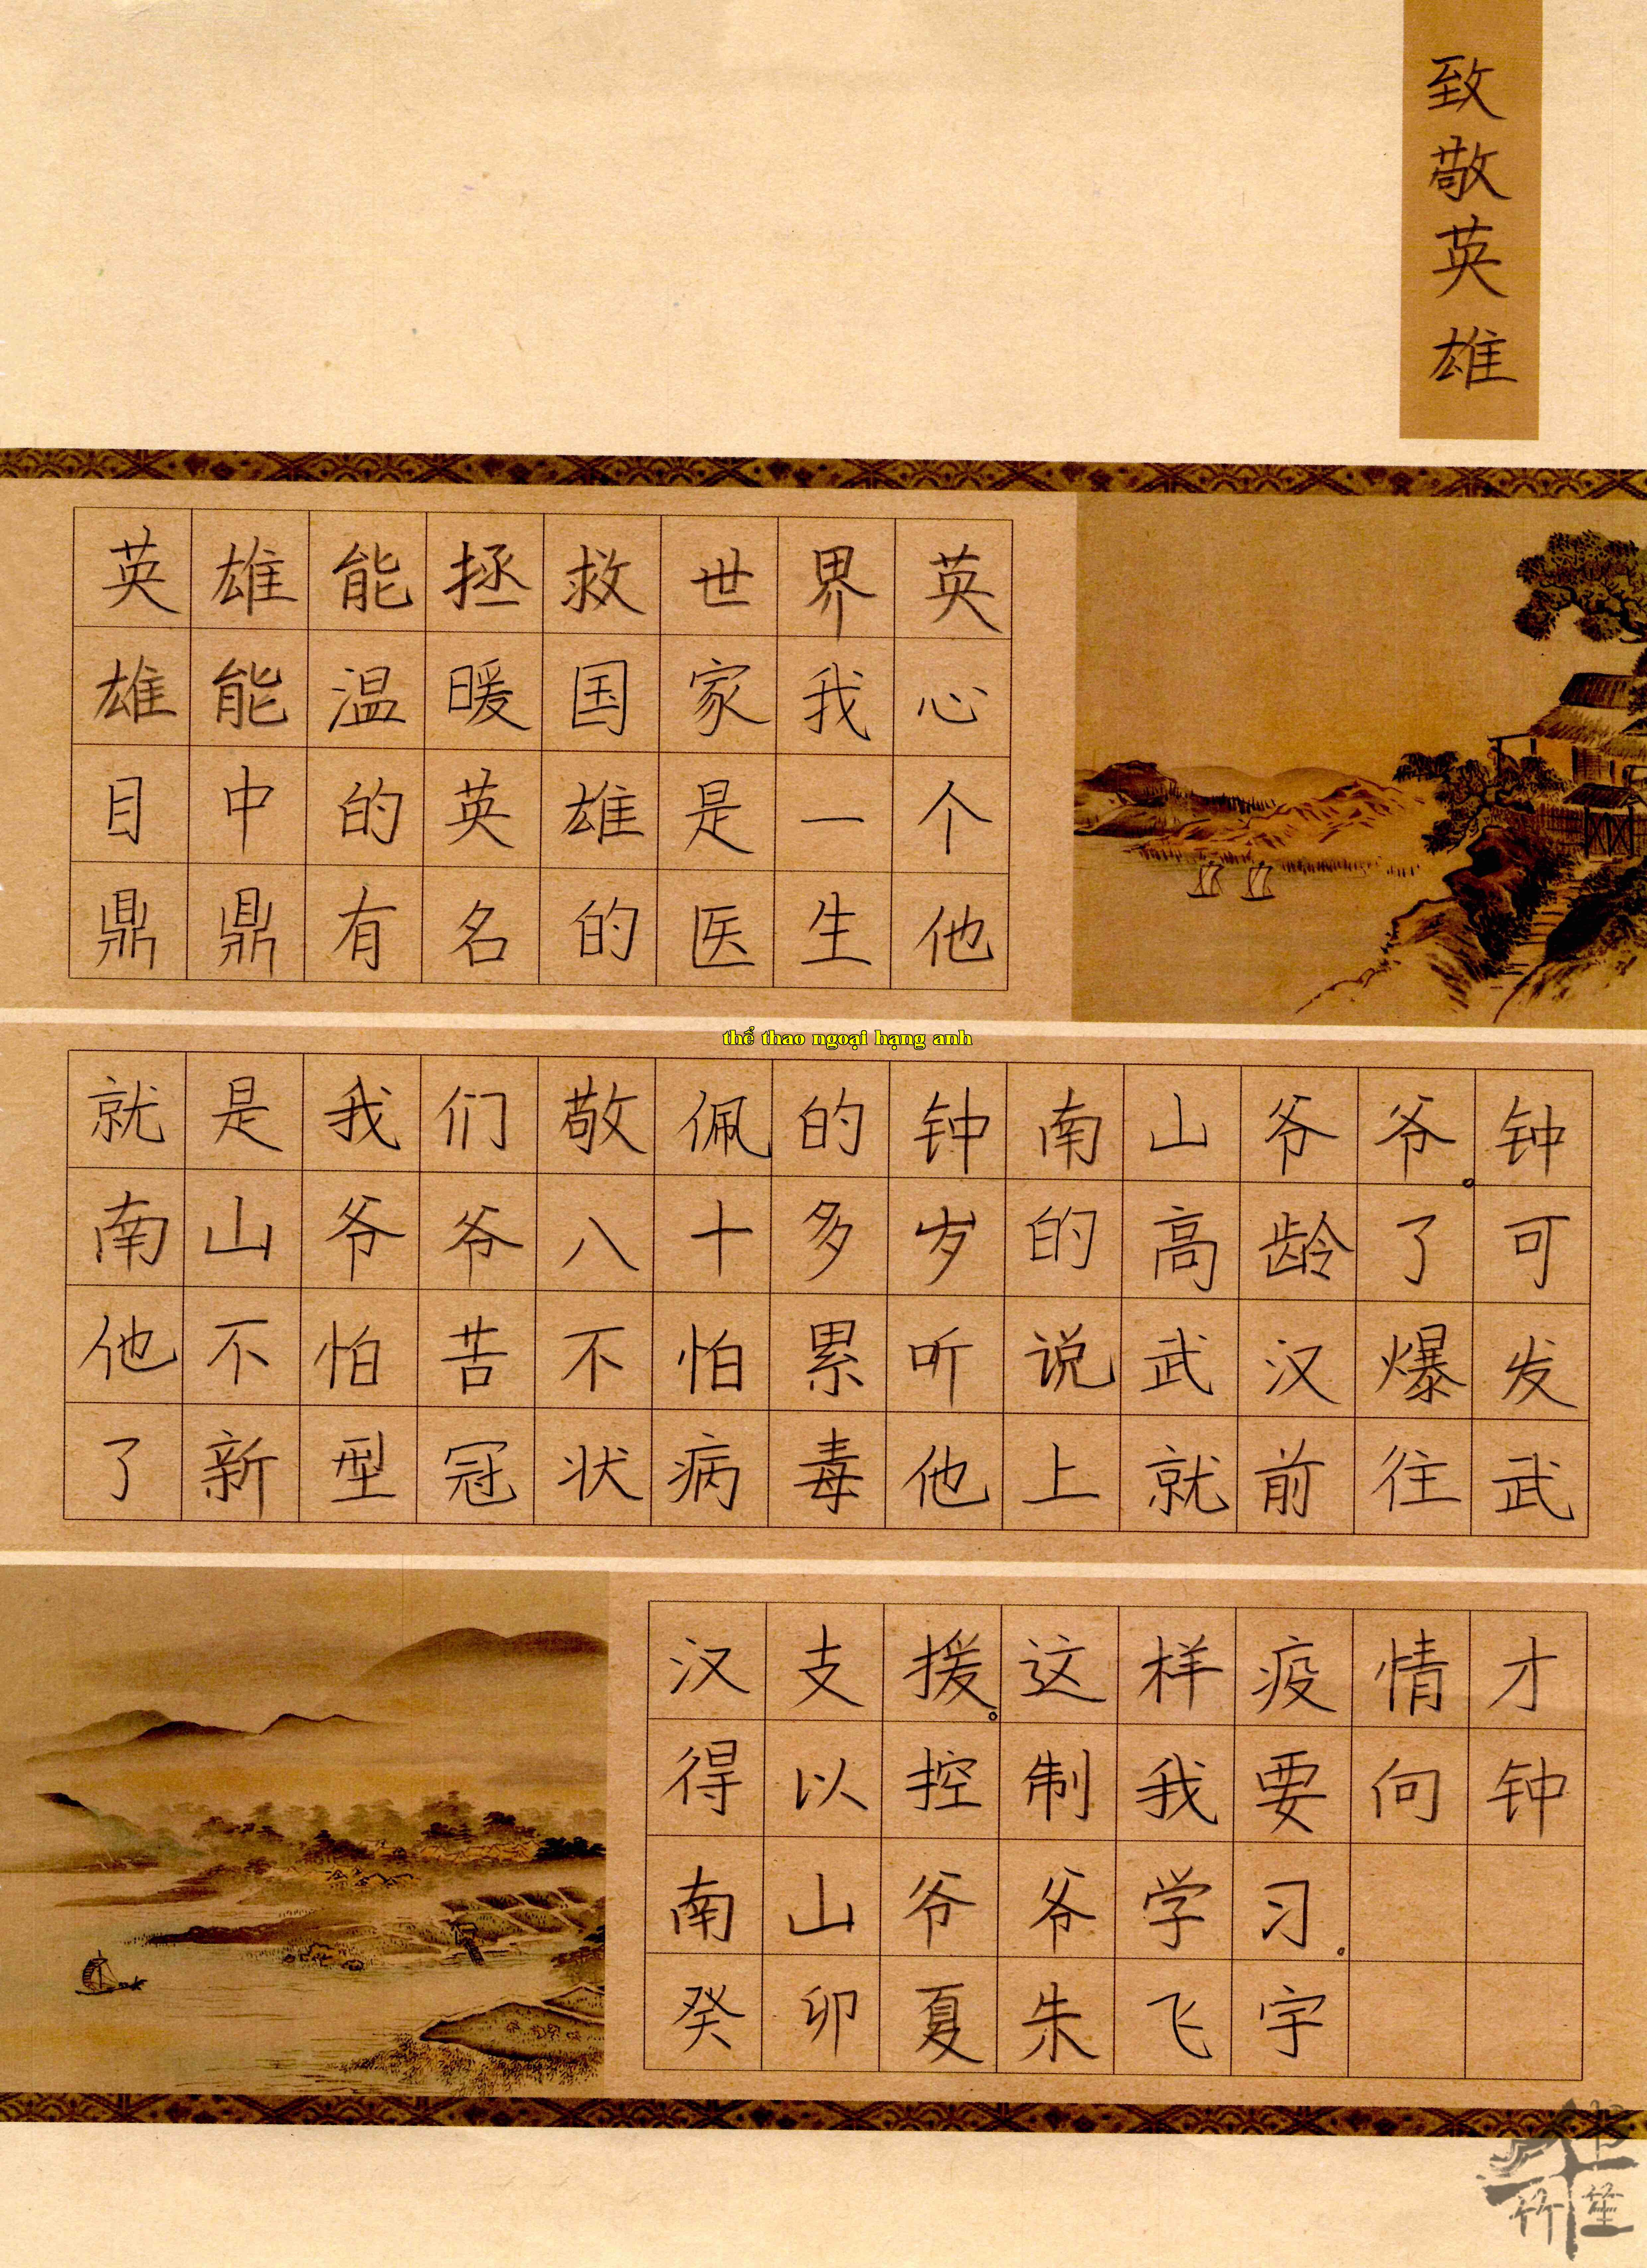 致敬英雄
英雄能拯救世界英
雄能温暖国家我心
目中的英雄是一个
鼎鼎有名的医生他
thể thao ngoại hạng anh
就是我们敬佩的钟南山爷爷。钟
南山爷爷八十多岁的高龄了可
他不怕苦不怕累听说武汉爆发
了新型冠状病毒他上就前往武
汉支援。这样疫情才
得以控制我要向钟
南山爷爷学习。
癸卯夏朱飞宇